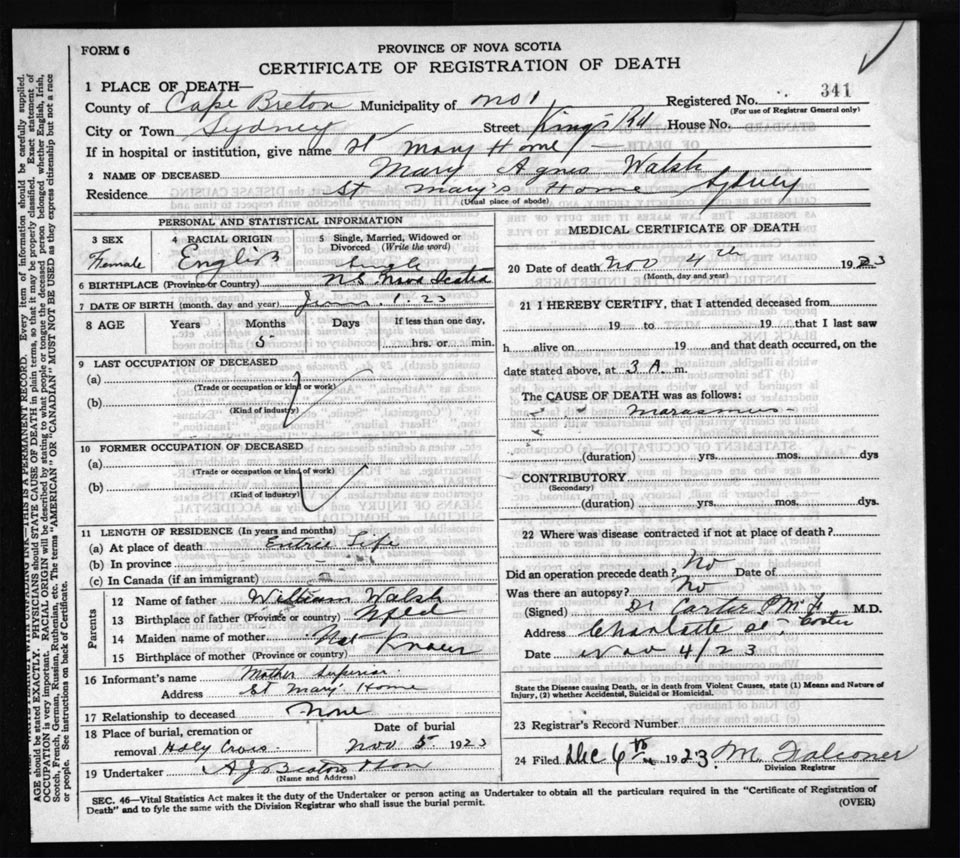 FORM 6
PROVINCE OF NOVA SCOTIA
CERTIFICATE OF REGISTRATION OF DEATH
341
1 PLACE OF DEATH—
County of Cape Breton Municipality of No 1 Registered No.
(For use of Registrar General only)
City or Town Sydney Street Kings Rd House No.
If in hospital or institution, give name St Mary Home
2 NAME OF DECEASED Mary Agnes Walsh
Residence St Mary's Home Sydney
(Usual place of abode)
PERSONAL AND STATISTICAL INFORMATION
3 SEX
Female
4 RACIAL ORIGIN
English
5 Single, Married, Widowed or Divorced (Write the word)
Single
6 BIRTHPLACE (Province or Country) N.S. Nova Scotia
7 DATE OF BIRTH (month, day and year) 1 - 23
8 AGE Years Months Days If less than one day,
5 hrs. or min.
9 LAST OCCUPATION OF DECEASED
(a)
(Trade or occupation or kind of work)
(b)
(Kind of industry)
10 FORMER OCCUPATION OF DECEASED
(a)
(Trade or occupation or kind of work)
(b)
(Kind of industry)
11 LENGTH OF RESIDENCE (In years and months)
(a) At place of death Entire Life
(b) In province
(c) In Canada (if an immigrant)
Parents
12 Name of father William Walsh
13 Birthplace of father (Province or country) Nfld
14 Maiden name of mother Not Known
15 Birthplace of mother (Province or country)
16 Informant's name Mother Superior
Address St Mary' Home
17 Relationship to deceased None
18 Place of burial, cremation or Date of burial
removal Holy Cross Nov 5 1923
19 Undertaker A J Beaton & Son
(Name and Address)
MEDICAL CERTIFICATE OF DEATH
20 Date of death Nov 4th 1923
(Month, day and year)
21 I HEREBY CERTIFY, that I attended deceased from
19 to 19 that I last saw
h alive on 19 and that death occurred, on the
date stated above, at 3 A. m.
The CAUSE OF DEATH was as follows:
Marasmus
(duration) yrs. mos. dys
CONTRIBUTORY
(Secondary)
(duration) yrs. mos. dys.
22 Where was disease contracted if not at place of death?
Did an operation precede death? No Date of
Was there an autopsy? No
(Signed) Dr Carter M.D.
Address Charlotte St
Date Nov 4/23
State the Disease causing Death, or in death from Violent Causes, state (1) Means and Nature of
Injury, (2) whether Accidental, Suicidal or Homicidal.
23 Registrar's Record Number
24 Filed Dec 6th 1923 M. Falconer
Division Registrar
SEC. 46—Vital Statistics Act makes it the duty of the Undertaker or person acting as Undertaker to obtain all the particulars required in the "Certificate of Registration of
Death" and to fyle the same with the Division Registrar who shall issue the burial permit.
(OVER)
WITH UNFADING INK—THIS IS A PERMANENT RECORD. Every item of information should be carefully supplied.
AGE should be stated EXACTLY. PHYSICIANS should STATE CAUSE OF DEATH in plain terms, so that it may be properly classified. Exact statement of
OCCUPATION is very important. RACIAL ORIGIN will be described by stating to what people or tongue the deceased person belonged whether English, Irish,
Scotch, French, German, Russian, Ruthenian, etc. The terms "AMERICAN" OR "CANADIAN" MUST NOT BE USED as they express citizenship but not a race
or people. See instructions on back of Certificate.